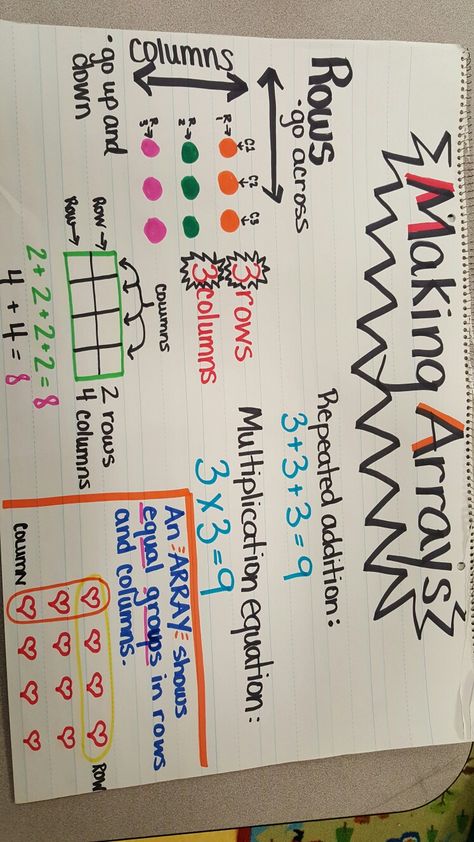 Making Arrays
Rows
- go across
columns
- go up and
down
C1 C2 C3
R1
R2
R3
3 rows
3 columns
Repeated addition:
3+3+3=9
Multiplication equation:
3 x 3 = 9
columns
Row →
Row →
2 rows
4 columns
2+2+2+2=8
4 + 4 = 8
An ARRAY shows
equal groups in rows
and columns.
Row
column